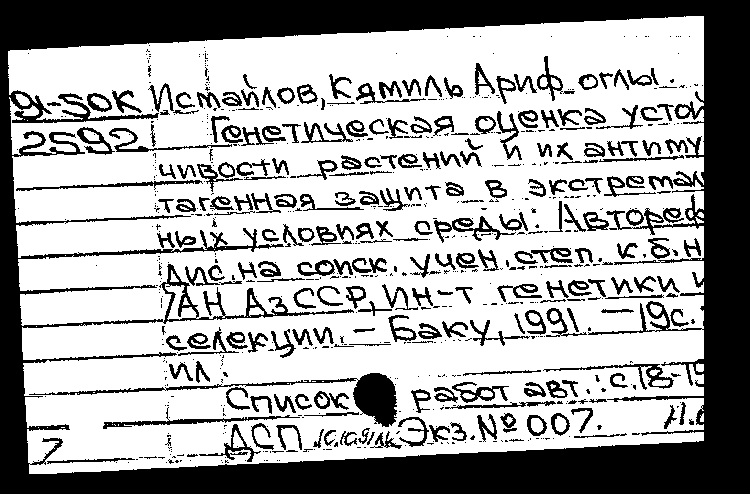 91-5ОК Исмайлов, Кямиль Ариф оглы.
2592 Генетическая оценка устой
чивости растений и их антиму
тагенная защита в экстремал
ных условиях среды: Автореф
дис. на соиск. учен. степ. к.б.н
/АН АзССР, Ин-т генетики и
селекции. – Баку, 1991. – 19с.
ил.
Список работ авт.: с.18-19
7 ДСП Экз. № 007.